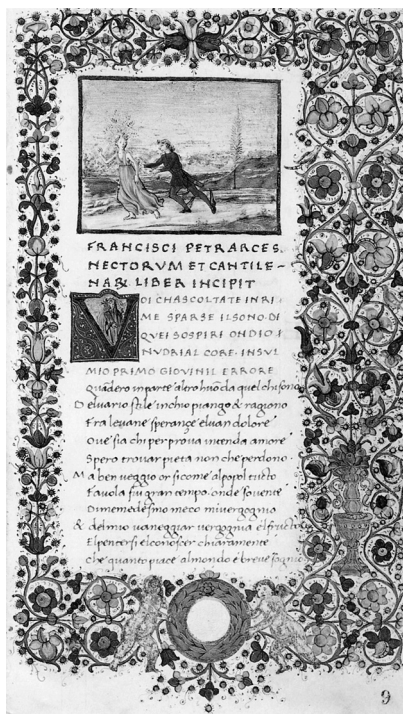 FRANCISCI PETRARCE S.
NECTORVM ET CANTILE-
NAR LIBER INCIPIT
VOI CHASCOLTATE IN RI
ME SPARSE IL SONO DI
QVEI SOSPIRI ONDIO I
NVDRIAL CORE INSVL
MIO PRIMO GIOVINIL ERRORE
Quadero inparte altro huo da quel chi sono
D elvario stile inchio piango & ragiono
Fra levane speranze elvan dolore
Ove sia chi per prova intenda amore
Spero trovar pieta non che perdono
M a ben veggio or sicome alpopol tutto
Favola fui gran tempo onde sovente
Dimemedesmo meco mi vergogno
& delmio vaneggiar vergognia el fructo
El pentersi elconoscer chiaramente
Che quanto piace almondo e breve sogno
9